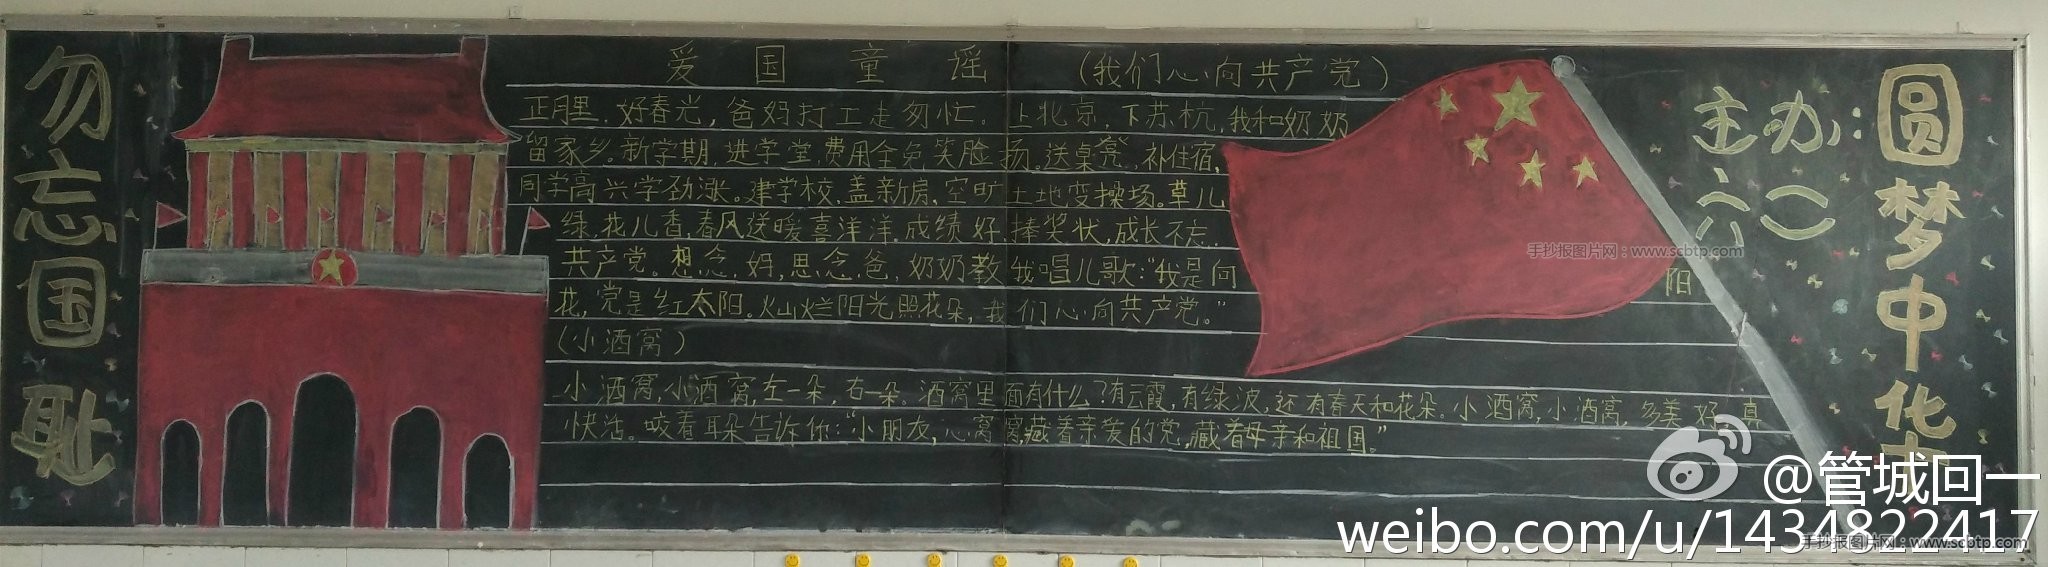 勿忘国耻
爱国童谣 (我们心向共产党)
正月里,好春光,爸妈打工走匆忙。上北京,下苏杭,我和奶奶
留家乡。新学期,进学堂,费用全免笑脸扬。送桌凳,补住宿,
同学高兴学劲涨。建学校,盖新房,空旷土地变操场。草儿
绿,花儿香,春风送暖喜洋洋。成绩好,捧奖状,成长不忘
共产党。想念妈,思念爸,奶奶教我唱儿歌:“我是向阳
花,党是红太阳。灿烂阳光照花朵,我们心向共产党。”
(小酒窝)
小酒窝,小酒窝,左一朵,右一朵。酒窝里面有什么?有云霞,有绿波,还有春天和花朵。小酒窝,小酒窝,多美好,真
快活。咬着耳朵告诉你:“小朋友,心窝窝藏着亲爱的党,藏着母亲和祖国。”
主办:
六(二)
圆梦中华
手抄报图片网:www.scbtp.com
@管城回一
weibo.com/u/1434822417
手抄报图片网:www.scbtp.com